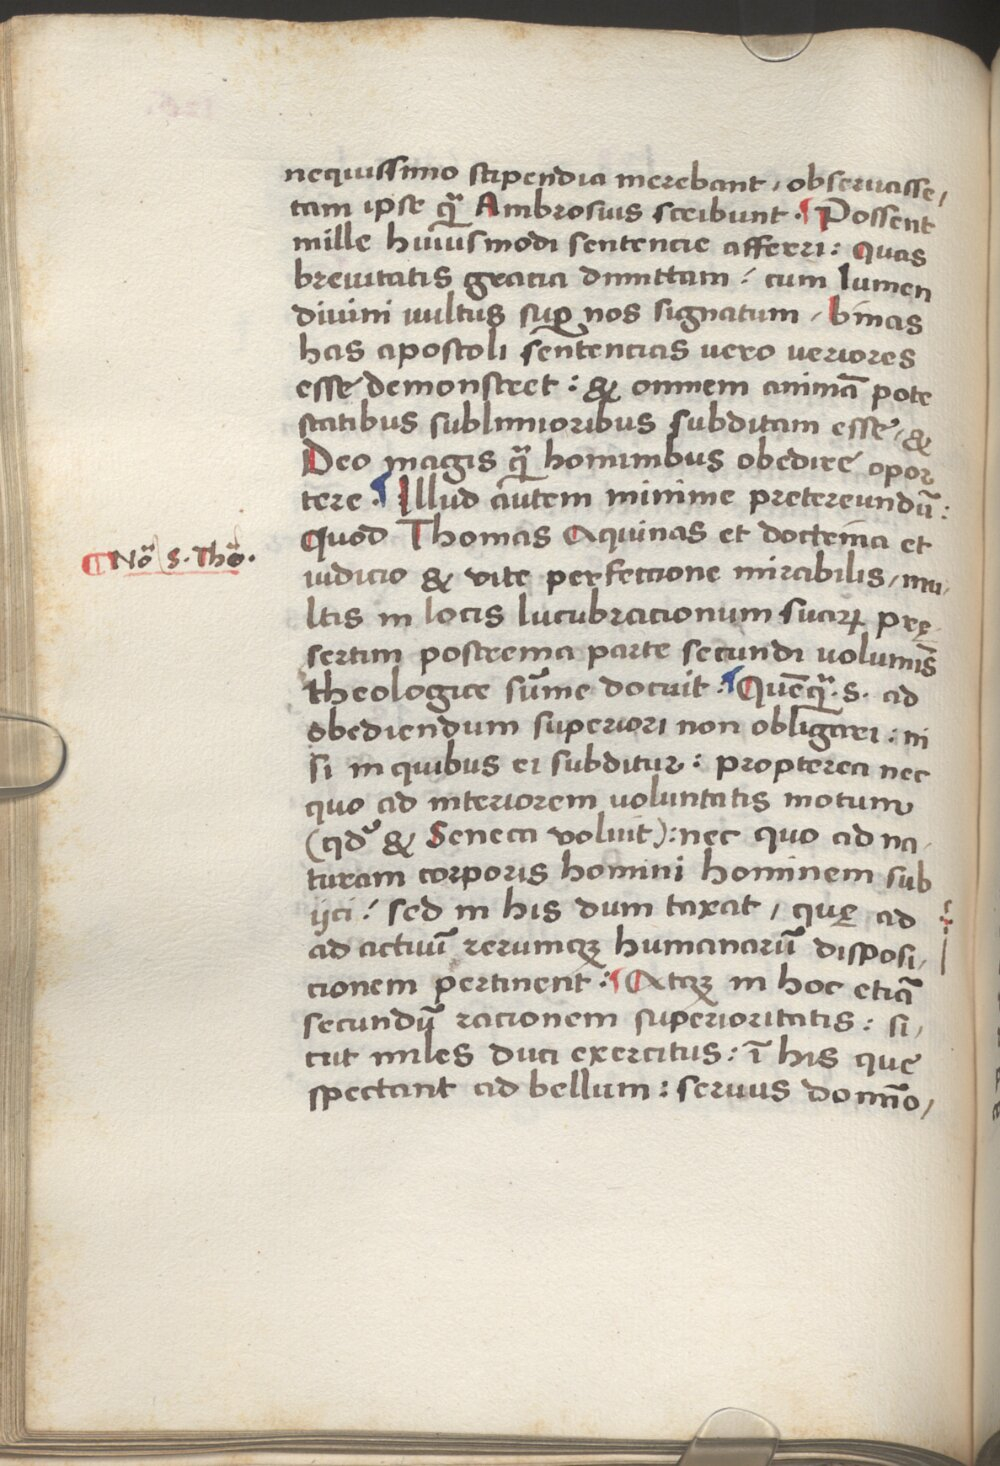 nequissimo stipendia merebant, obseruasse,
tam ipse qͣ̃ Ambrosius scribunt. ¶ Possent
mille huiusmodi sentencie afferri: Quas
breuitatis gracia dimittam: cum lumen
diuini uultus suꝑ nos signatum, binas
has apostoli sentencias uero ueriores
esse demonstret: & omnem animā pote
statibus sublimioribus subditam esse, &
Deo magis qͣ̃ hominibus obedire opor
tere. ¶ Illud autem minime pretereundū:
Quod Thomas Aquinas et doctrina et
¶ Noͣ S. Tho᷃.
iudicio & vite perfectione mirabilis, mu,
ltis in locis lucubracionum suaꝝ prę,
sertim postrema parte secundi uoluminis̄
theologice sūme docuit: ¶ Quēqͣ̃. s. ad
obediendum superiori non obligari: ni
si in quibus ei subditur: propterea nec
quo ad interiorem uoluntatis motum
(qd̛ & Seneca voluit): nec quo ad na,
turam corporis homini hominem sub
ijci: sed in his dum taxat, quę ad
ad actuū rerumqꝫ humanarū disposi,
cionem pertinent: ¶ Atqꝫ in hoc etiā
secundū racionem superioritatis: si,
cut miles duci exercitus: ī his que
spectant ad bellum: seruus domīo,